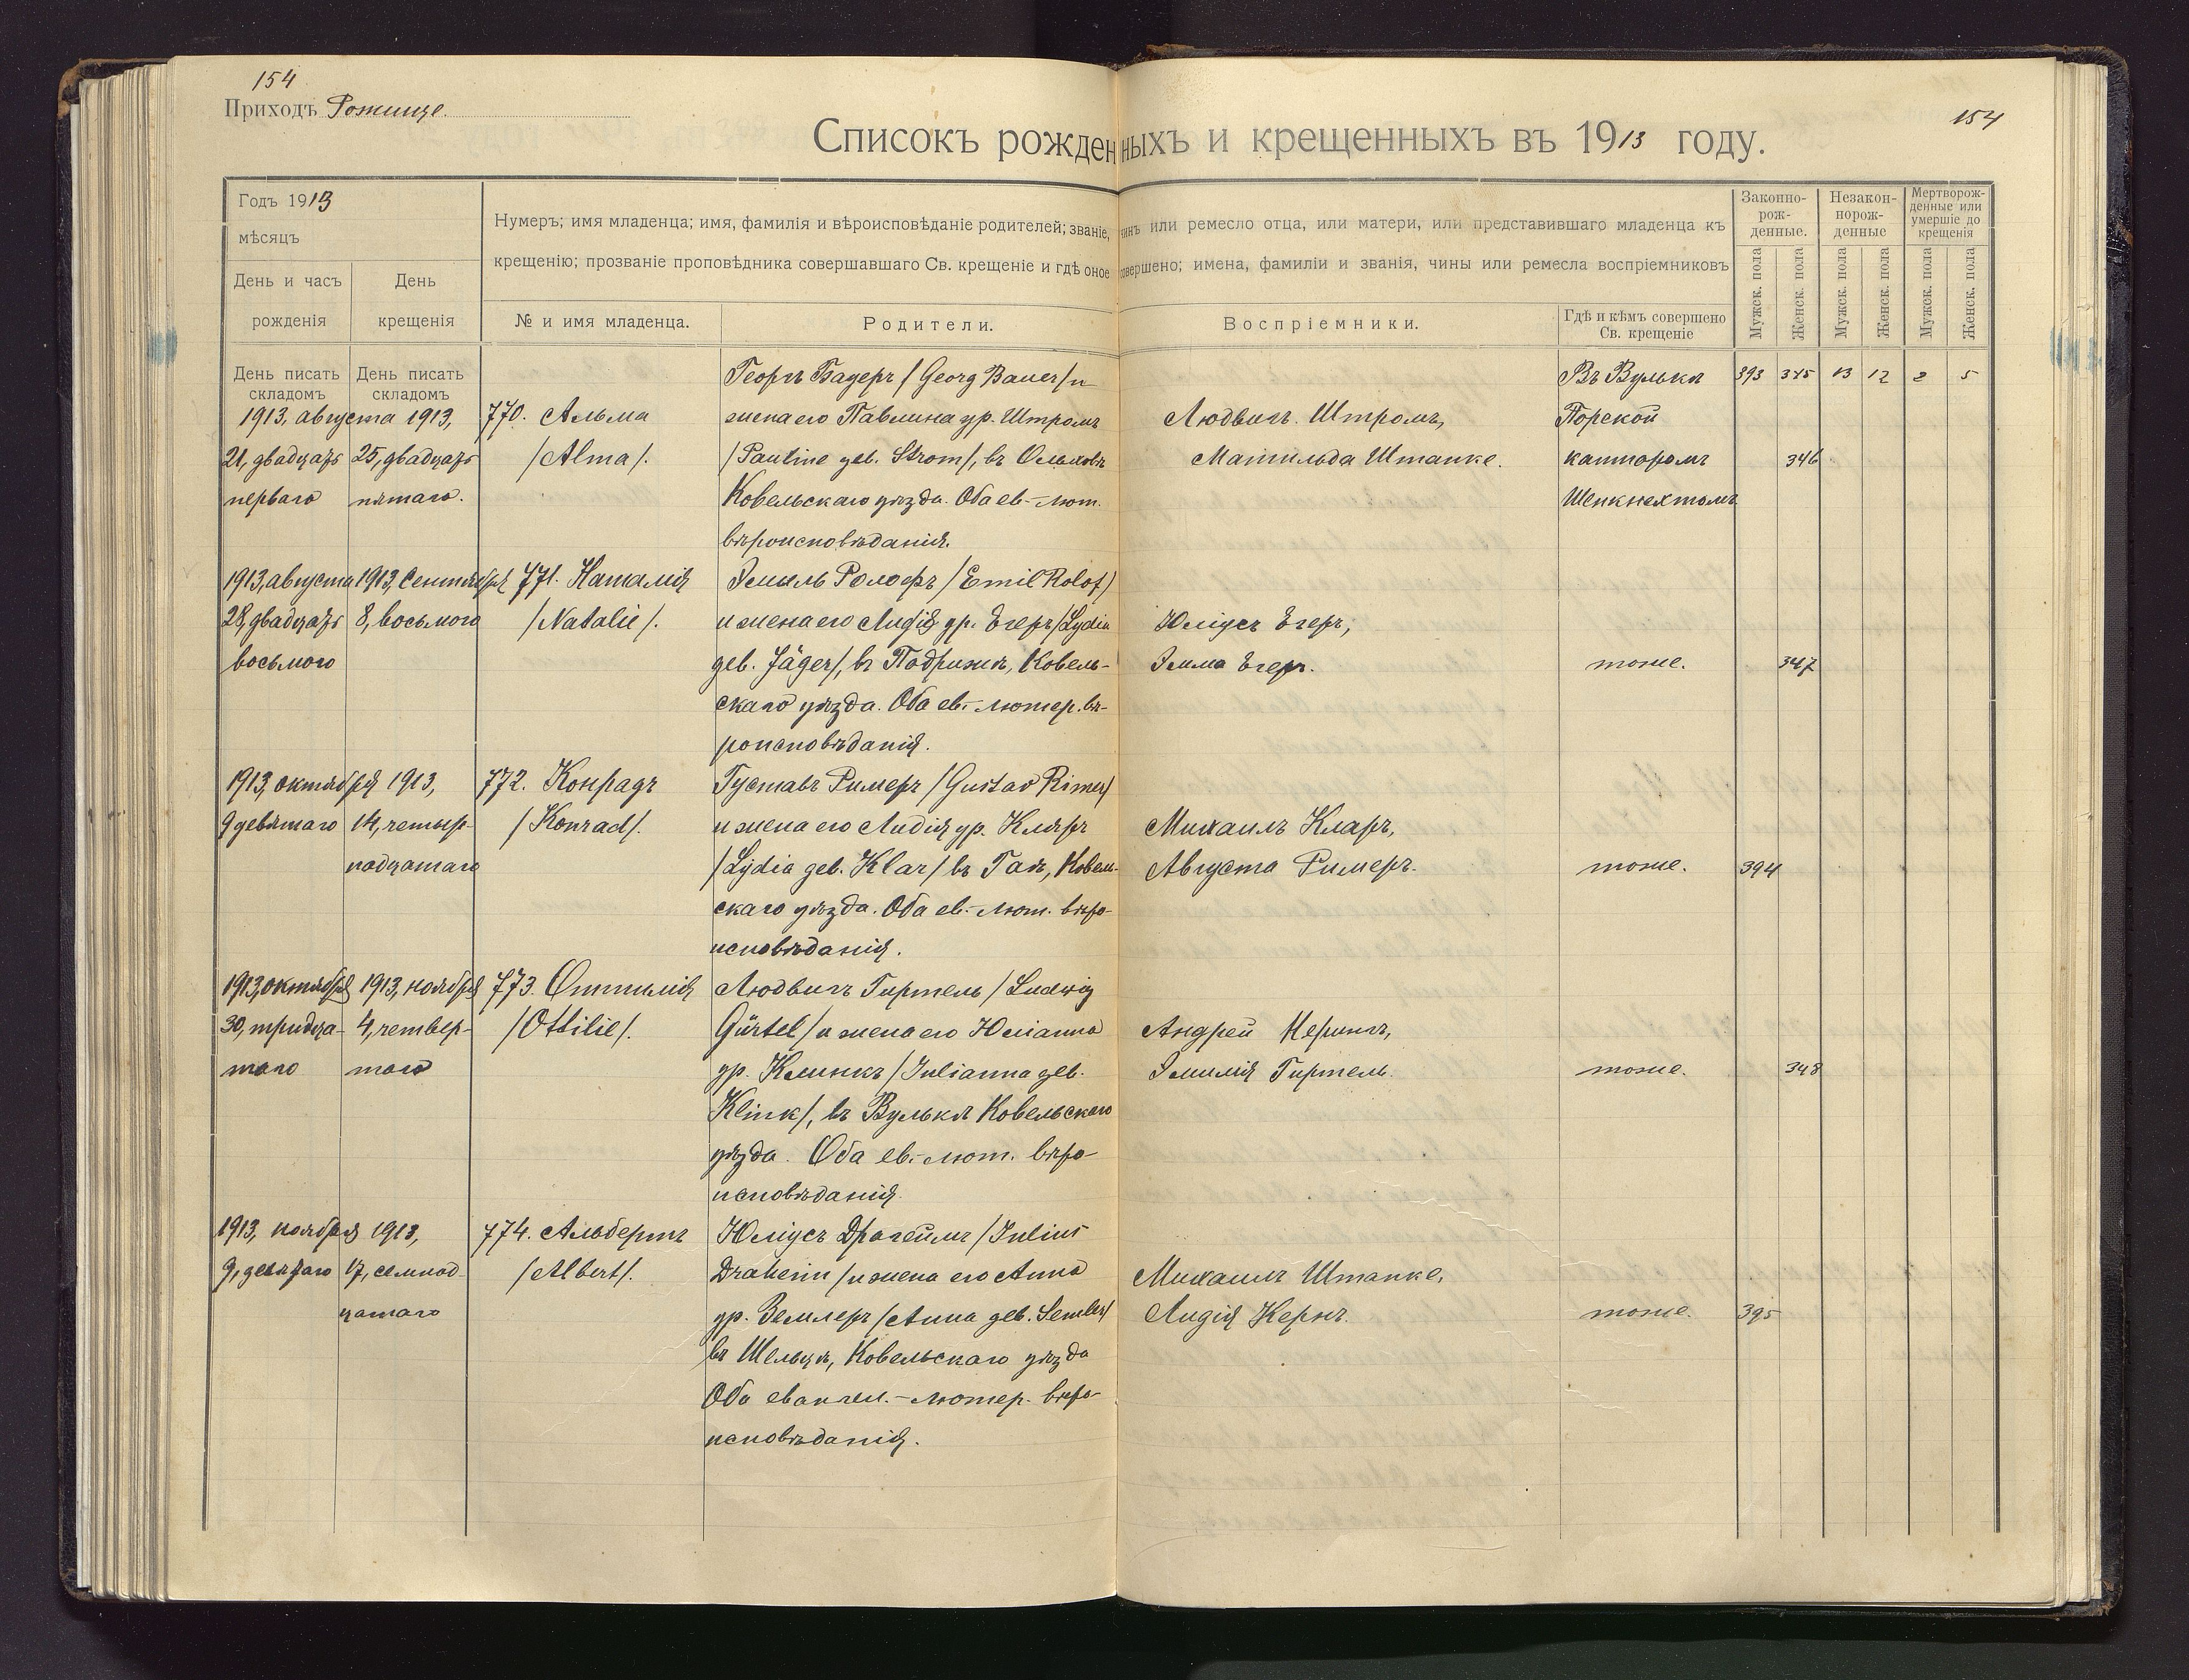 154
Приходъ Рожище
154
Списокъ рожденныхъ и крещенныхъ въ 1913 году.
Годъ 1913
мѣсяцъ
День и часъ рожденія
День крещенія
Нумеръ; имя младенца; имя, фамилія и вѣроисповѣданіе родителей; званіе, чинъ или ремесло отца, или матери, или представившаго младенца къ
крещенію; прозваніе проповѣдника совершавшаго Св. крещеніе и гдѣ оное совершено; имена, фамиліи и званія, чины или ремесла воспріемниковъ
№ и имя младенца.
Родители.
Воспріемники.
Гдѣ и кѣмъ совершено
Св. крещеніе
Законно-
рож-
денные.
Незакон-
норож-
денные
Мертворож-
денные или
умершіе до
крещенія
Мужск. пола
Женск. пола
Мужск. пола
Женск. пола
Мужск. пола
Женск. пола
День писать
складомъ
День писать
складомъ
393 345 13 12 2 5
1913, августа 1913,
21, двадцать 25, двадцать
перваго пятаго.
770. Альма
/Alma/.
Георгъ Бауеръ /Georg Bauer/ и
жена его Павлина ур. Штромъ
/Pauline geb. Strom/, въ Ольховѣ
Ковельскаго уѣзда. Оба ев.-лют.
вѣроисповѣданія.
Людвигъ Штромъ,
Матильда Штапке.
Въ Вулькѣ
Порской
канторомъ
Шенкнехтомъ
346
1913, августа 1913, Сентября
28, двадцать 8, восьмого
восьмого
771. Наталія
/Natalie/.
Эмиль Ролофъ /Emil Rolof/
и жена его Лидія ур. Егеръ /Lydia
geb. Jäger/, въ Подрижѣ, Ковель-
скаго уѣзда. Оба ев.-лютер. вѣ-
роисповѣданія.
Юліусъ Егеръ,
Эмма Егеръ.
тоже.
347
1913, октября 1913,
9 девятаго 14, четыр-
надцатаго
772. Конрадъ
/Konrad/.
Густавъ Римеръ /Gustav Rimer/
и жена его Лидія ур. Кляръ
/Lydia geb. Klar/ въ Гаѣ, Ковель-
скаго уѣзда. Оба ев.-лют. вѣро-
исповѣданія.
Михаилъ Кларъ,
Августа Римеръ.
тоже.
394
1913, октября 1913, ноября
30, тридца- 4, четвер-
таго таго
773. Оттилія
/Ottilie/.
Людвигъ Гиртель /Ludwig
Gürtel/ и жена его Юлianna
ур. Клинкъ /Julianna geb.
Klink/, въ Вулькѣ Ковельскаго
уѣзда. Оба ев.-лют. вѣро-
исповѣданія.
Андрей Нерингъ,
Эмилія Гиртель.
тоже.
348
1913, ноября 1913,
9, девятаго 17, семнад-
цатаго
774. Альбертъ
/Albert/.
Юліусъ Драгеймъ /Julius
Draheim/ и жена его Анна
ур. Землеръ /Anna geb. Semler/
въ Шельцѣ, Ковельскаго уѣзда
Оба евангел.-лютер. вѣро-
исповѣданія.
Михаилъ Штапке,
Лидія Кернъ.
тоже.
395